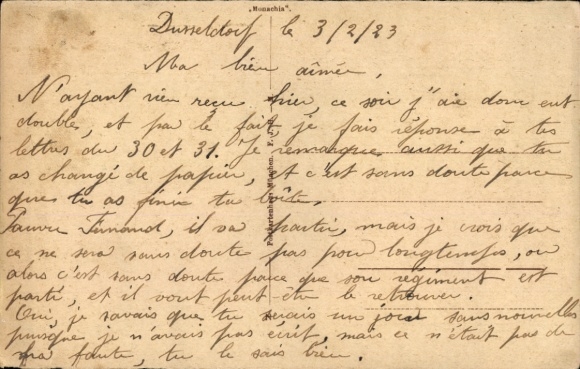 „Monachia“
Dusseldorf le 3/2/23
Ma bien aimée,
N'ayant rien reçu hier, ce soir j'aie donc eut
doubles, et par le fait je fais réponse à tes
lettres du 30 et 31. Je remarque aussi que tu
as changé de papier, et c'est sans doute parce
que tu as finie ta boîte.
Pauvre Finand, il va partir, mais je crois que
ce ne sera sans doute pas pour longtemps, ou
alors c'est sans doute parce que son régiment est
parti, et il vont peut être le retrouver.
Oui, je savais que tu serais un jour sans nouvelles
puisque je n'avais pas écrit, mais ce n'était pas de
ma faute, tu le sais bien.